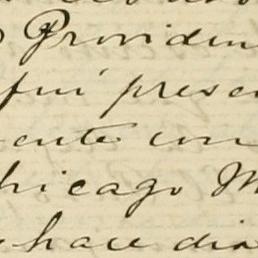 Providen
fui presen
ente con
hicago M
hace dia